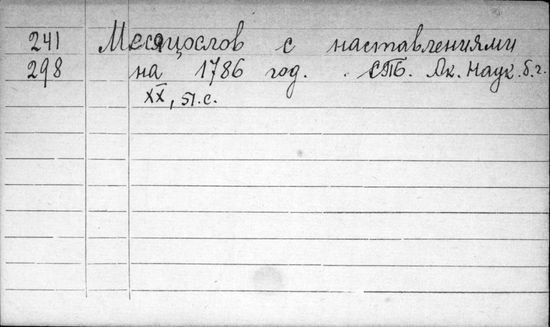 241 Месяцослов с наставлениями
298 на 1786 год. СПБ. Ак. Наук. б.г.
XX, 51.с.